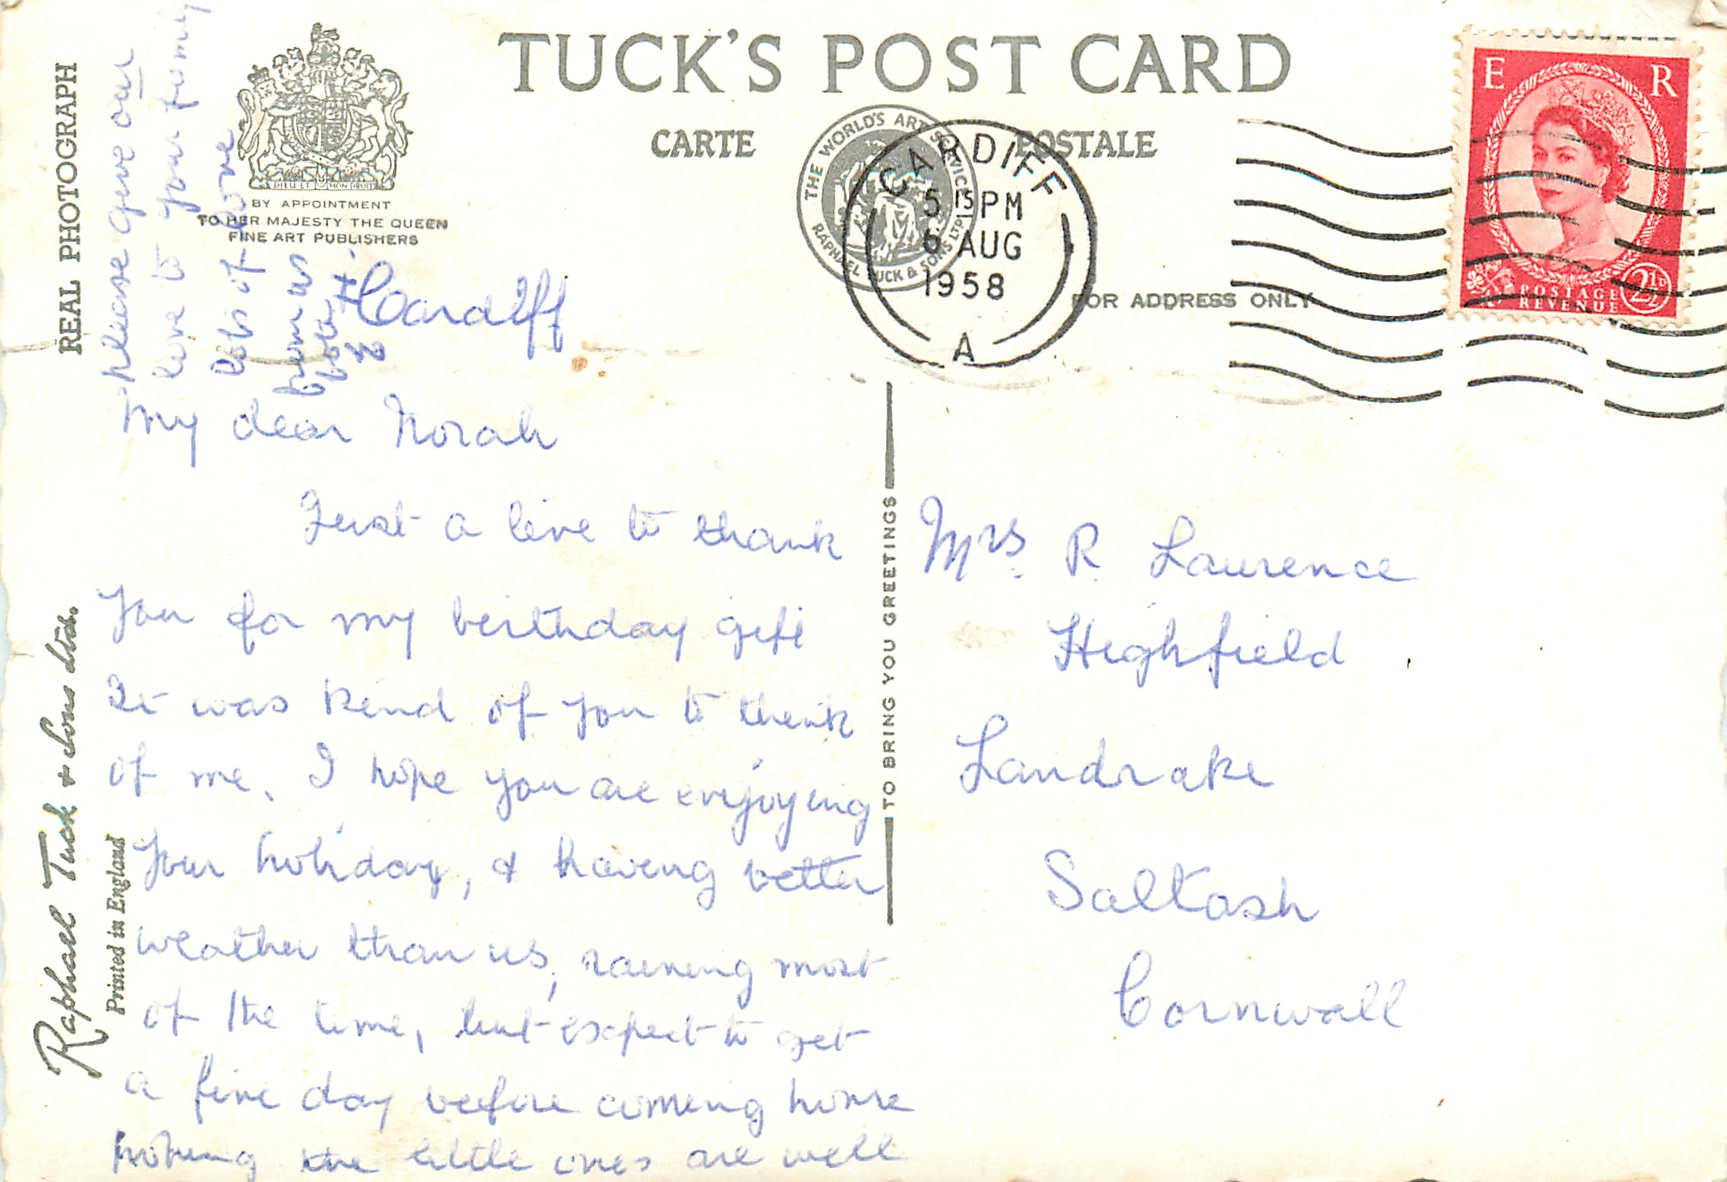 TUCK'S POST CARD
CARTE POSTALE
REAL PHOTOGRAPH
DIEU ET MON DROIT
BY APPOINTMENT
TO HER MAJESTY THE QUEEN
FINE ART PUBLISHERS
THE WORLD'S ART SERVICE
RAPHAEL TUCK & SONS LTD
CARDIFF
5 15 PM
6 AUG
1958
A
FOR ADDRESS ONLY
E R
POSTAGE
REVENUE
2½D
Cardiff
My dear Norah
Just a line to thank
you for my birthday gift
It was kind of you to think
of me. I hope you are enjoying
your holiday, & having better
weather than us, raining most
of the time, but expect to get
a fine day before coming home
hoping the little ones are well
please give our
love to your family
lots of love
from us
TO BRING YOU GREETINGS
Mrs. R. Laurence
Highfield
Landrake
Saltash
Cornwall
Raphael Tuck & Sons Ltd.
Printed in England